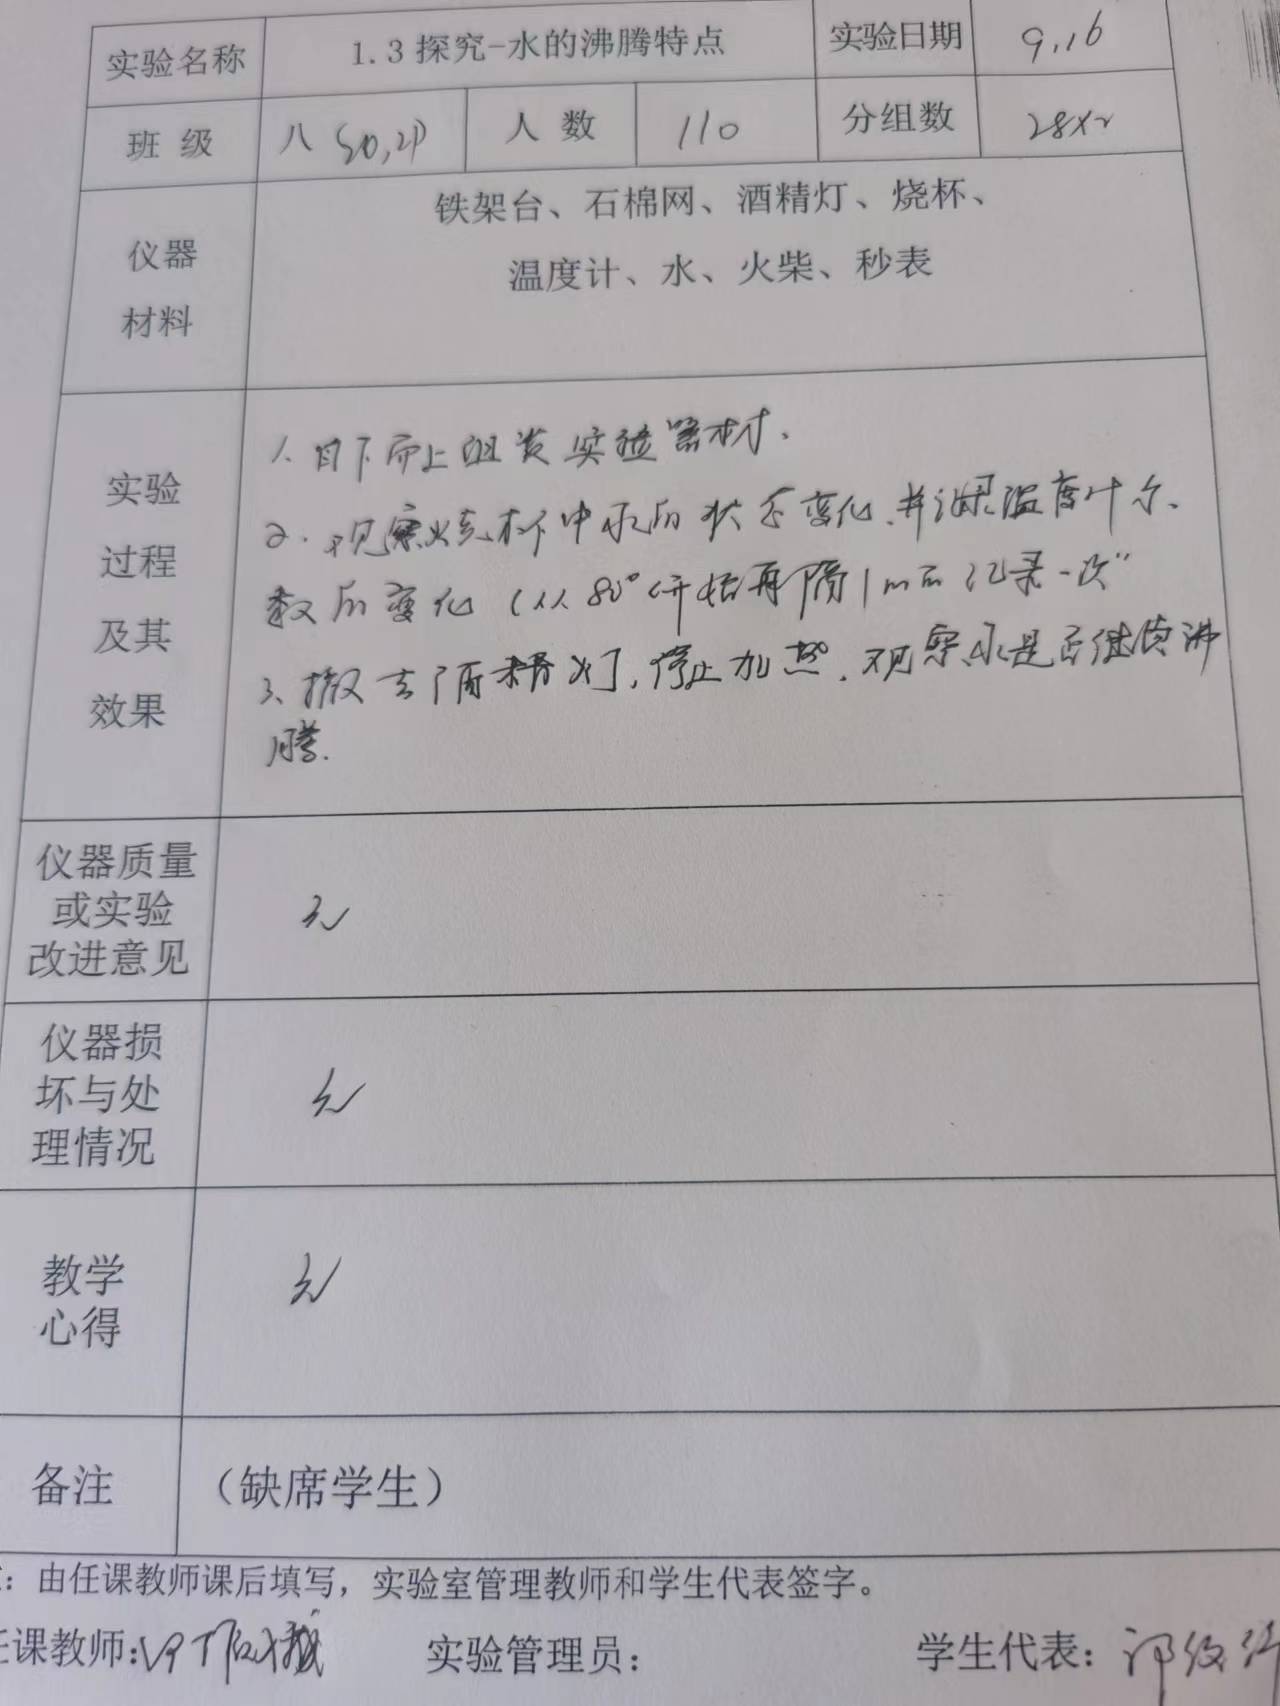 实验名称 1.3探究-水的沸腾特点 实验日期 9.16
班 级 八 人 数 110 分组数 28×2
仪器
材料
铁架台、石棉网、酒精灯、烧杯、
温度计、水、火柴、秒表
实验
过程
及其
效果
1. 自下而上组装实验器材.
2. 观察烧杯中水的状态变化.并记录温度计示
数的变化(从80°开始每隔1min记录一次)
3. 撤去酒精灯,停止加热.观察水是否继续沸
腾.
仪器质量
或实验
改进意见
无
仪器损
坏与处
理情况
无
教学
心得
无
备注 （缺席学生）
：由任课教师课后填写，实验室管理教师和学生代表签字。
任课教师: 实验管理员： 学生代表：